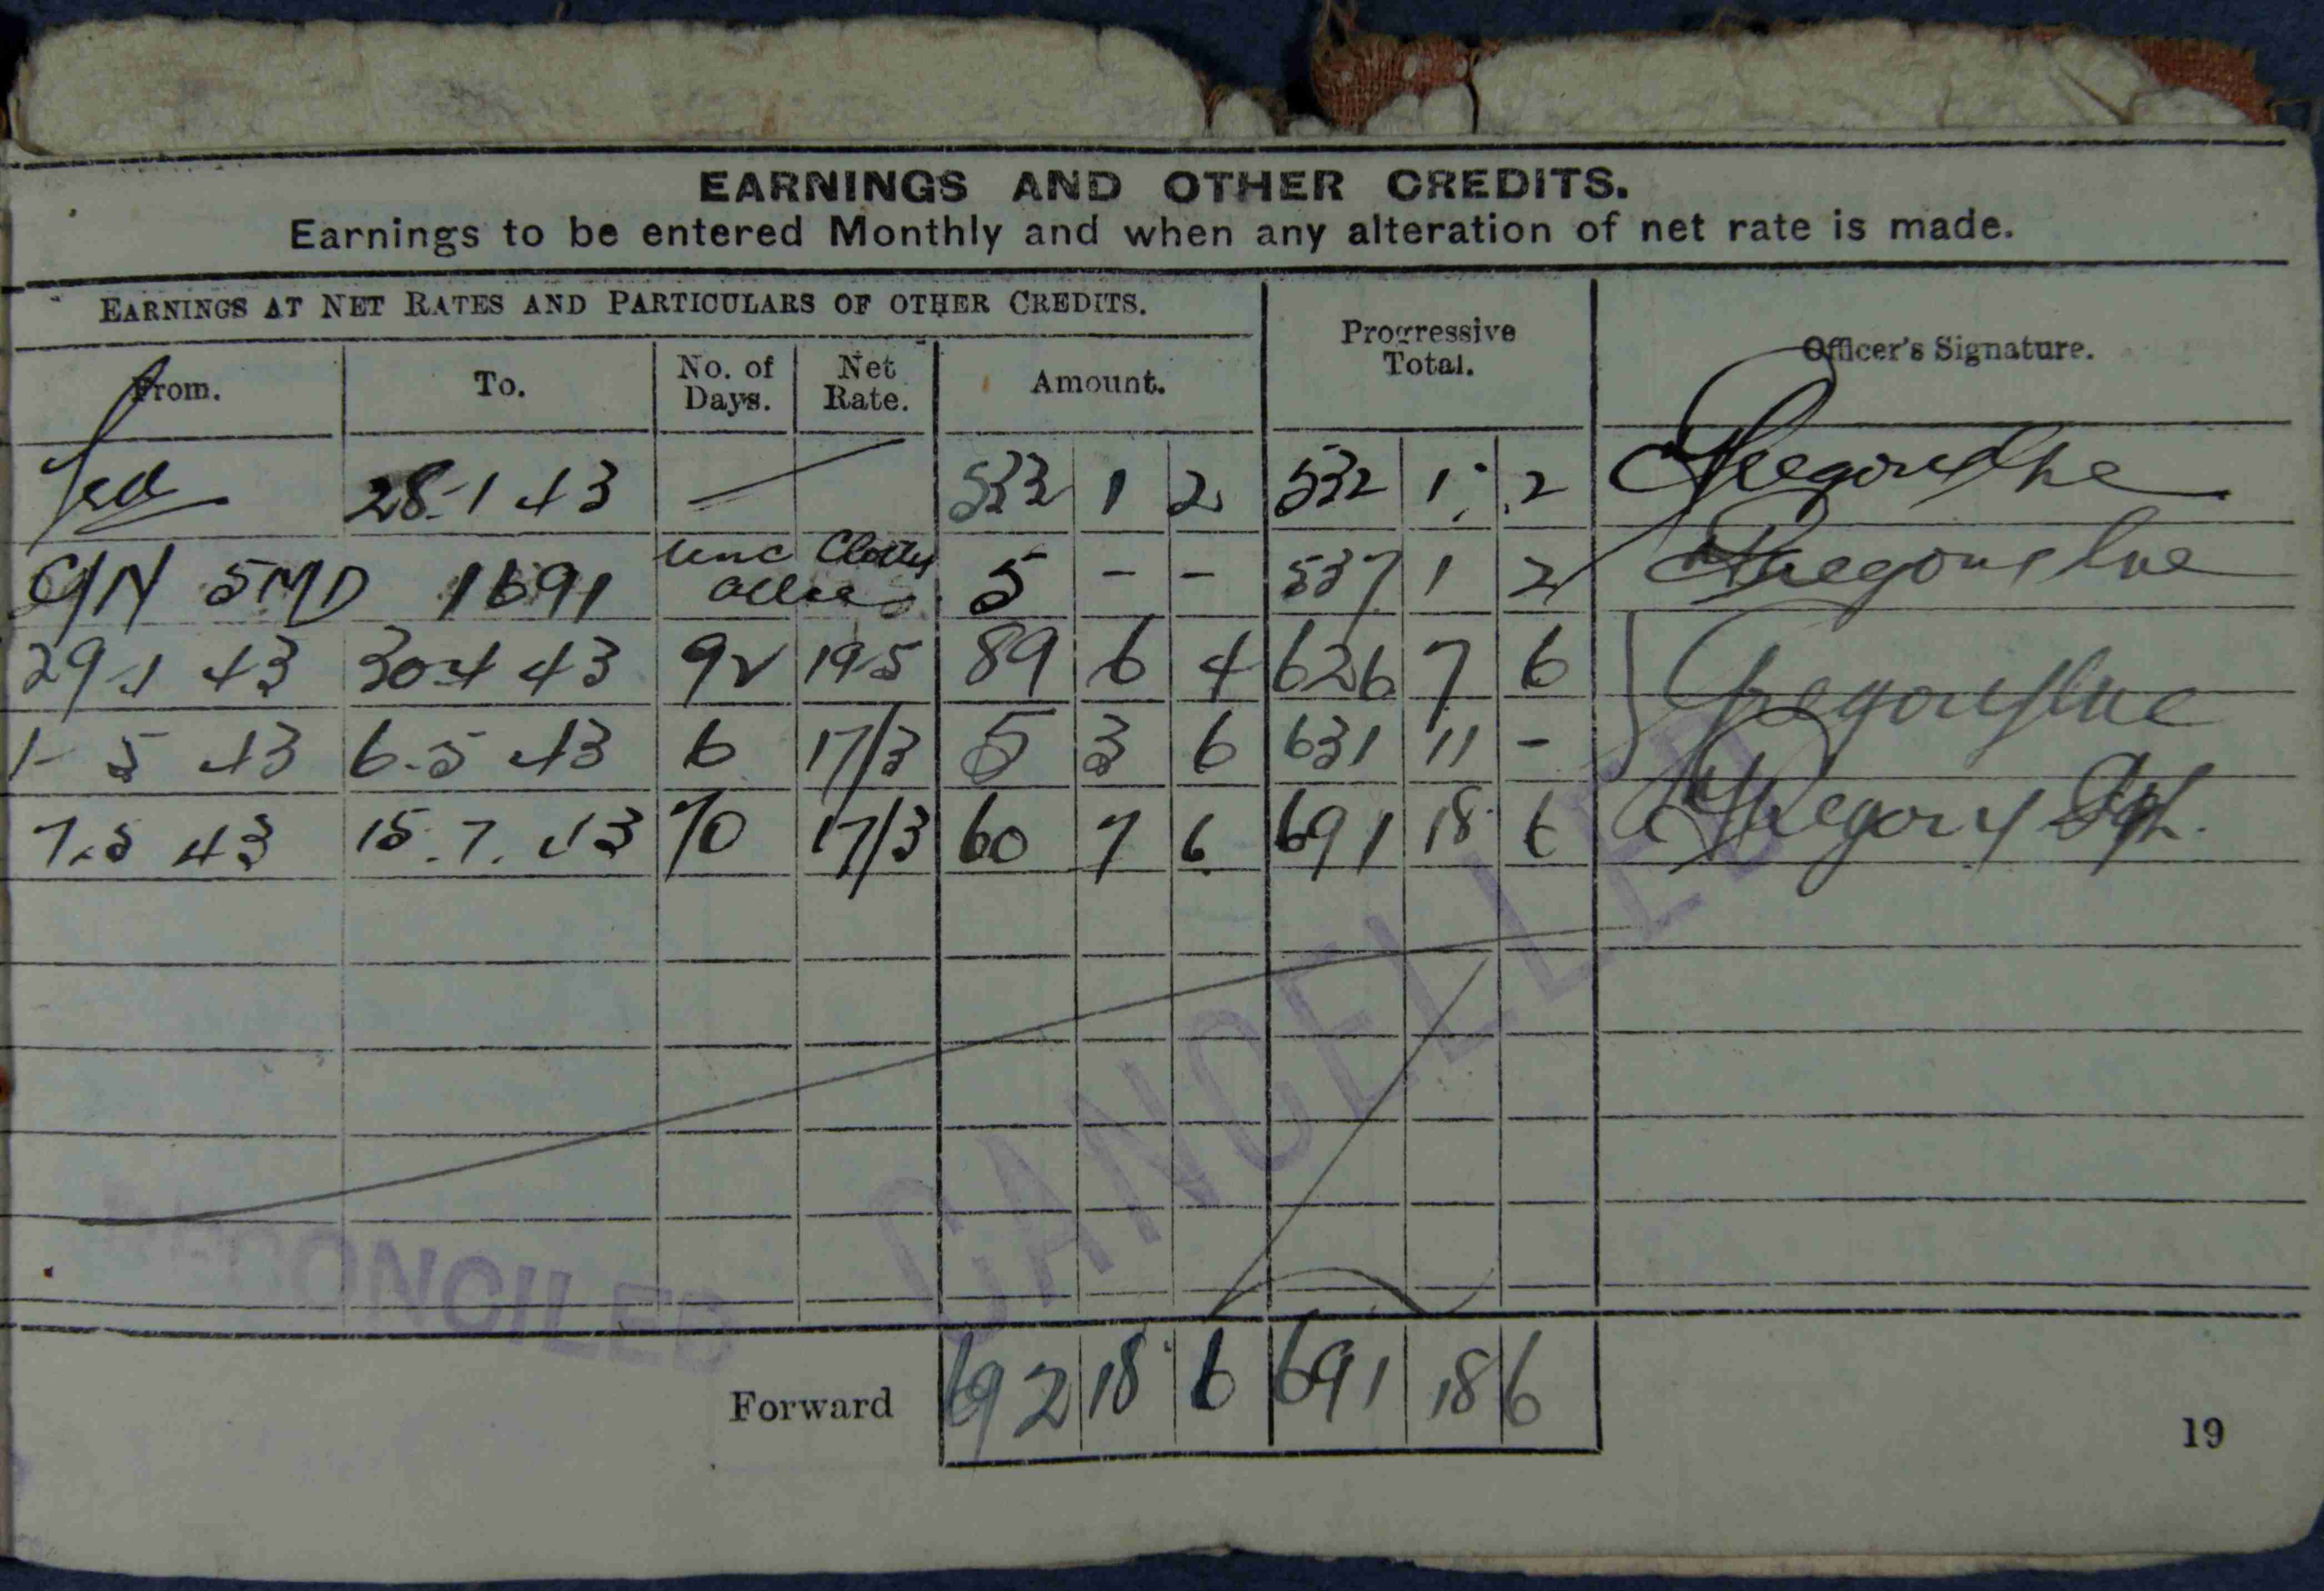 EARNINGS AND OTHER CREDITS.
Earnings to be entered Monthly and when any alteration of net rate is made.
EARNINGS AT NET RATES AND PARTICULARS OF OTHER CREDITS.
Progressive Total.
Officer's Signature.
From. To. No. of Days. Net Rate. Amount.
28-1 43 — 532 1 2 532 1 2
C/N 5MD 1691 5 - - 537 1 2
29-1 43 30-4 43 92 19-5 89 6 4 626 7 6
1-5 43 6-5 43 6 17/3 5 3 6 631 11 -
7.5 43 15.7.43 70 17/3 60 7 6 691 18 6
CANCELLED
RECONCILED
Forward 692 18 6 691 18 6
19